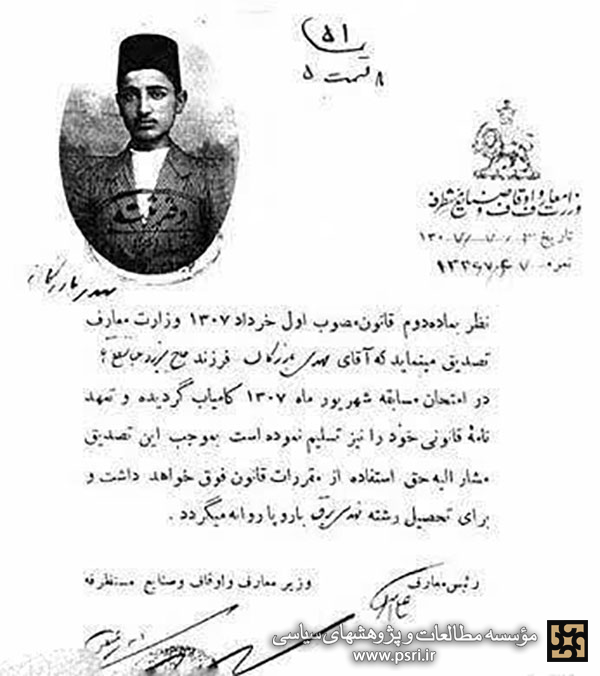 ۵۱
۸ قسمت ۵
وزارت معارف و اوقاف و صنایع مستظرفه
تاریخ
نمره
مهدی بازرگان
نظر بماده دوم قانون مصوب اول خرداد ۱۳۰۷ وزارت معارف
تصدیق مینماید که آقای مهدی بازرگان فرزند حاج
در امتحان مسابقه شهریور ماه ۱۳۰۷ کامیاب گردیده و تعهد
نامهٔ قانونی خود را نیز تسلیم نموده است بموجب این تصدیق
مشارالیه حق استفاده از مقررات قانون فوق خواهد داشت و
برای تحصیل رشته برق باروپا روانه میگردد .
رئیس معارف
وزیر معارف و اوقاف و صنایع مستظرفه
مؤسسه مطالعات و پژوهشهای سیاسی
www.psri.ir